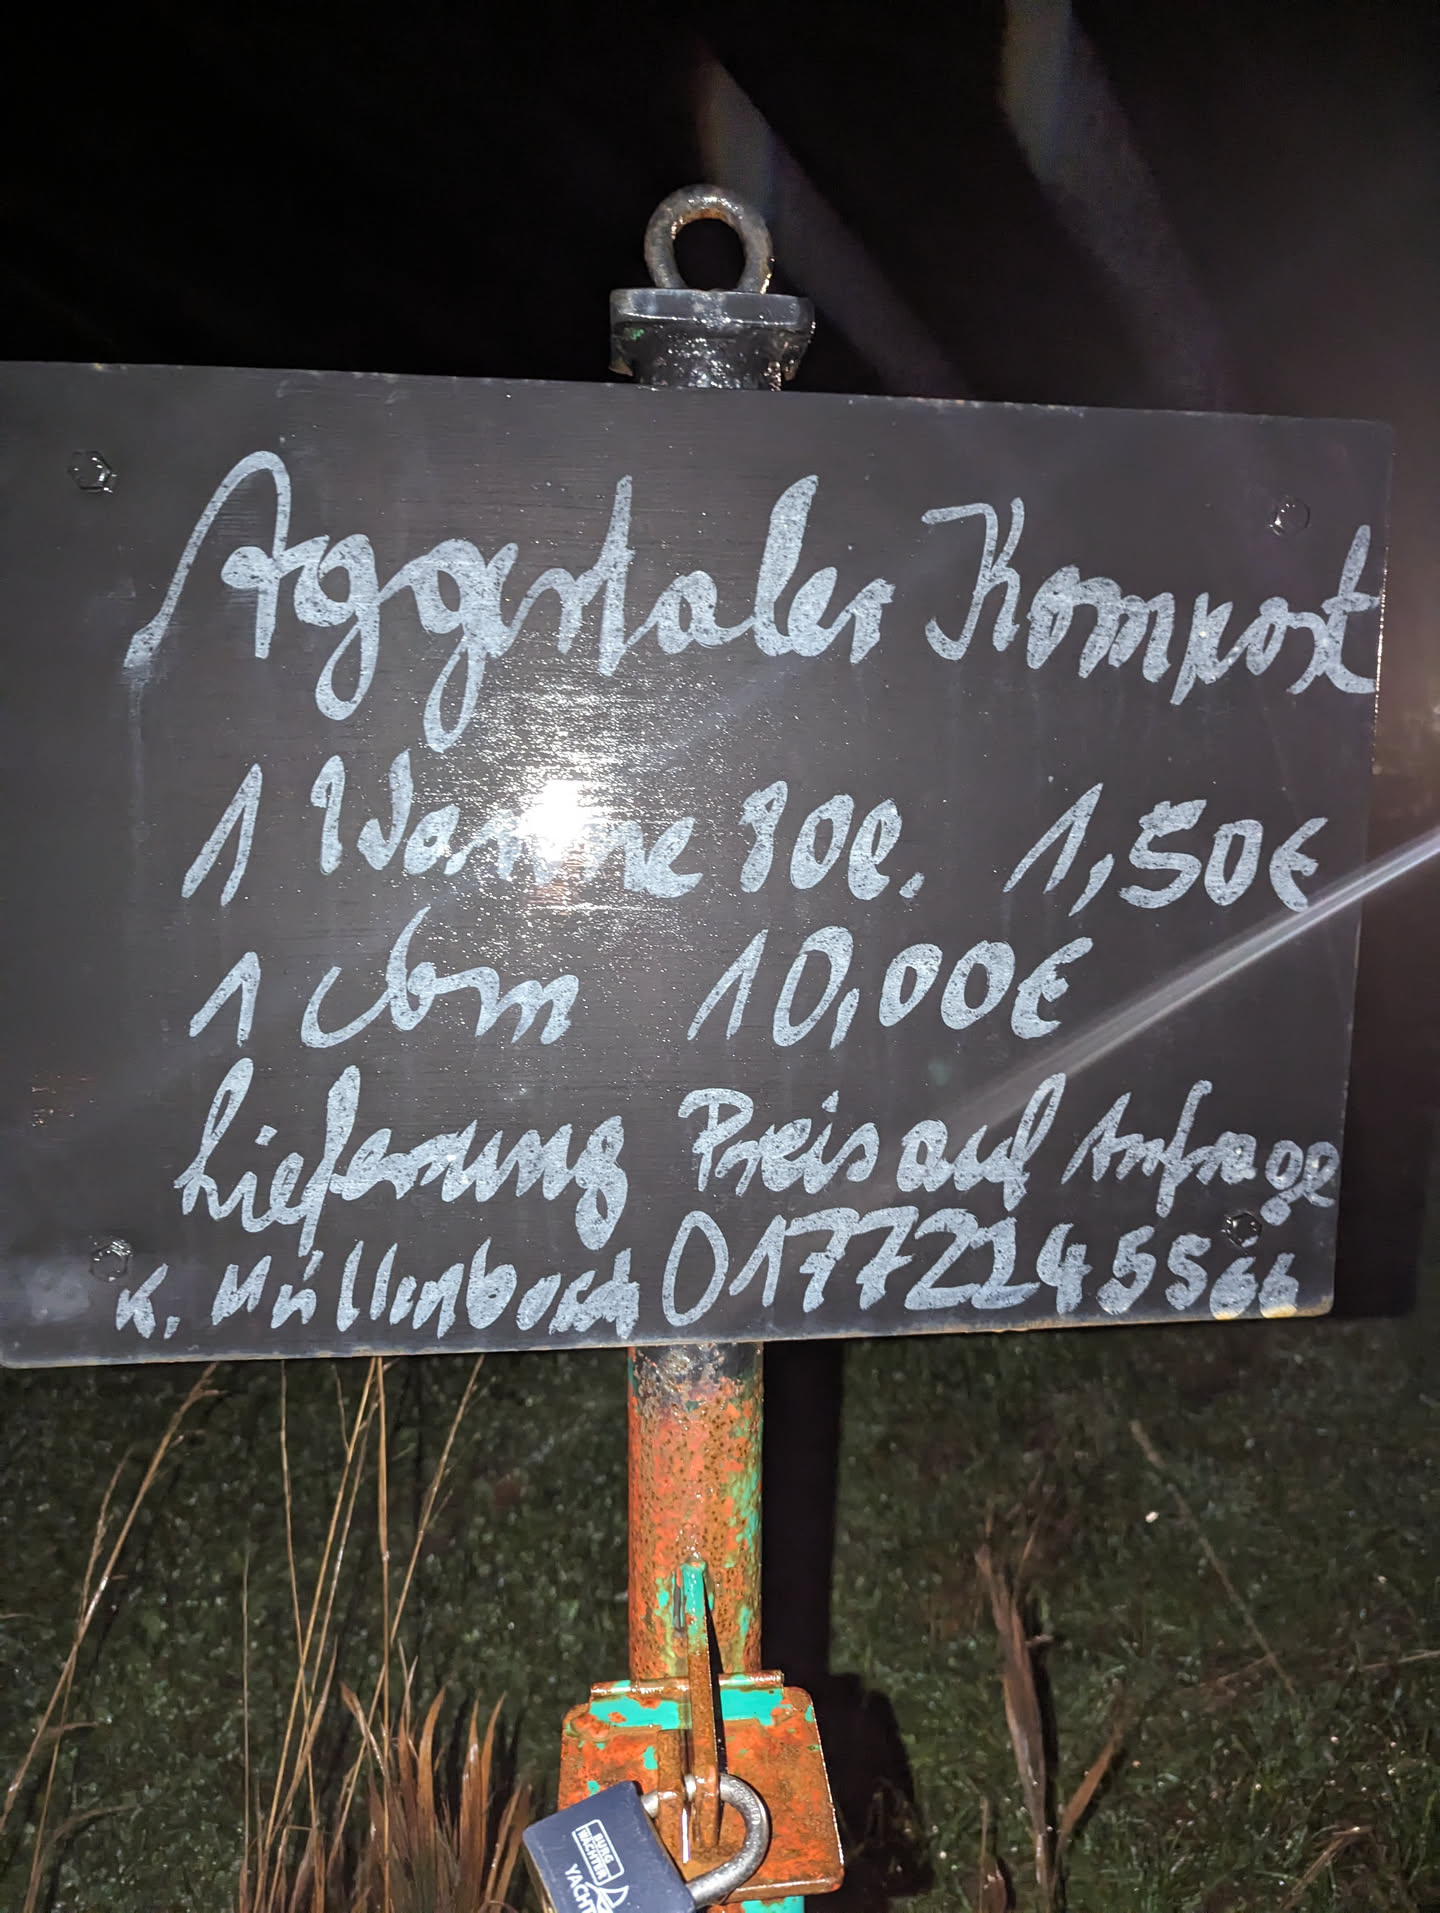 Aggertaler Kompost
1 Wanne 80l. 1,50€
1 cbm 10,00€
Lieferung Preis auf Anfrage
K. Müllenbosch 01772245566
BURG
WÄCHTER
YACHT